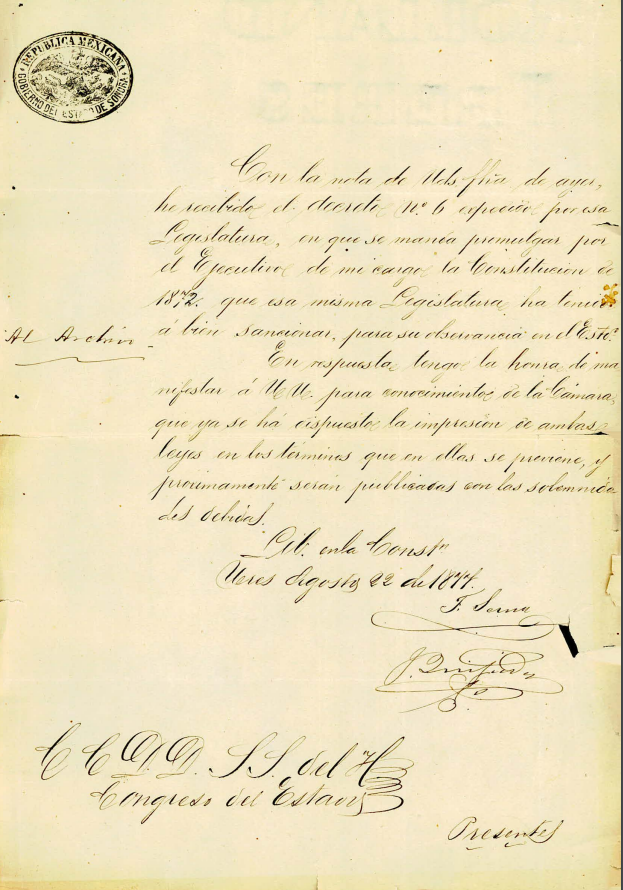 REPUBLICA MEXICANA
GOBIERNO DEL ESTADO DE SONORA
Con la nota de Uds. fha de ayer,
he recibido el decreto nº 6 expedido por esa
Legislatura, en que se manda promulgar por
el Ejecutivo de mi cargo la Constitucion de
1872. que esa misma Legislatura ha tenido
á bien sancionar, para su observancia en el Estº.
Al Archivo
En respuesta tengo la honra de ma
nifestar á UU. para conocimiento de la Cámara,
que ya se há dispuesto la impresión de ambas
leyes en los términos que en ellas se previene, y
procsimamente serán publicadas con las solemnida
des debidas.
Lib. en la Constn
Ures Agosto 22 de 1877.
F. Serna
J. Quijada
Sº
C C D. D. S. S. del H.
Congreso del Estado
Presentes